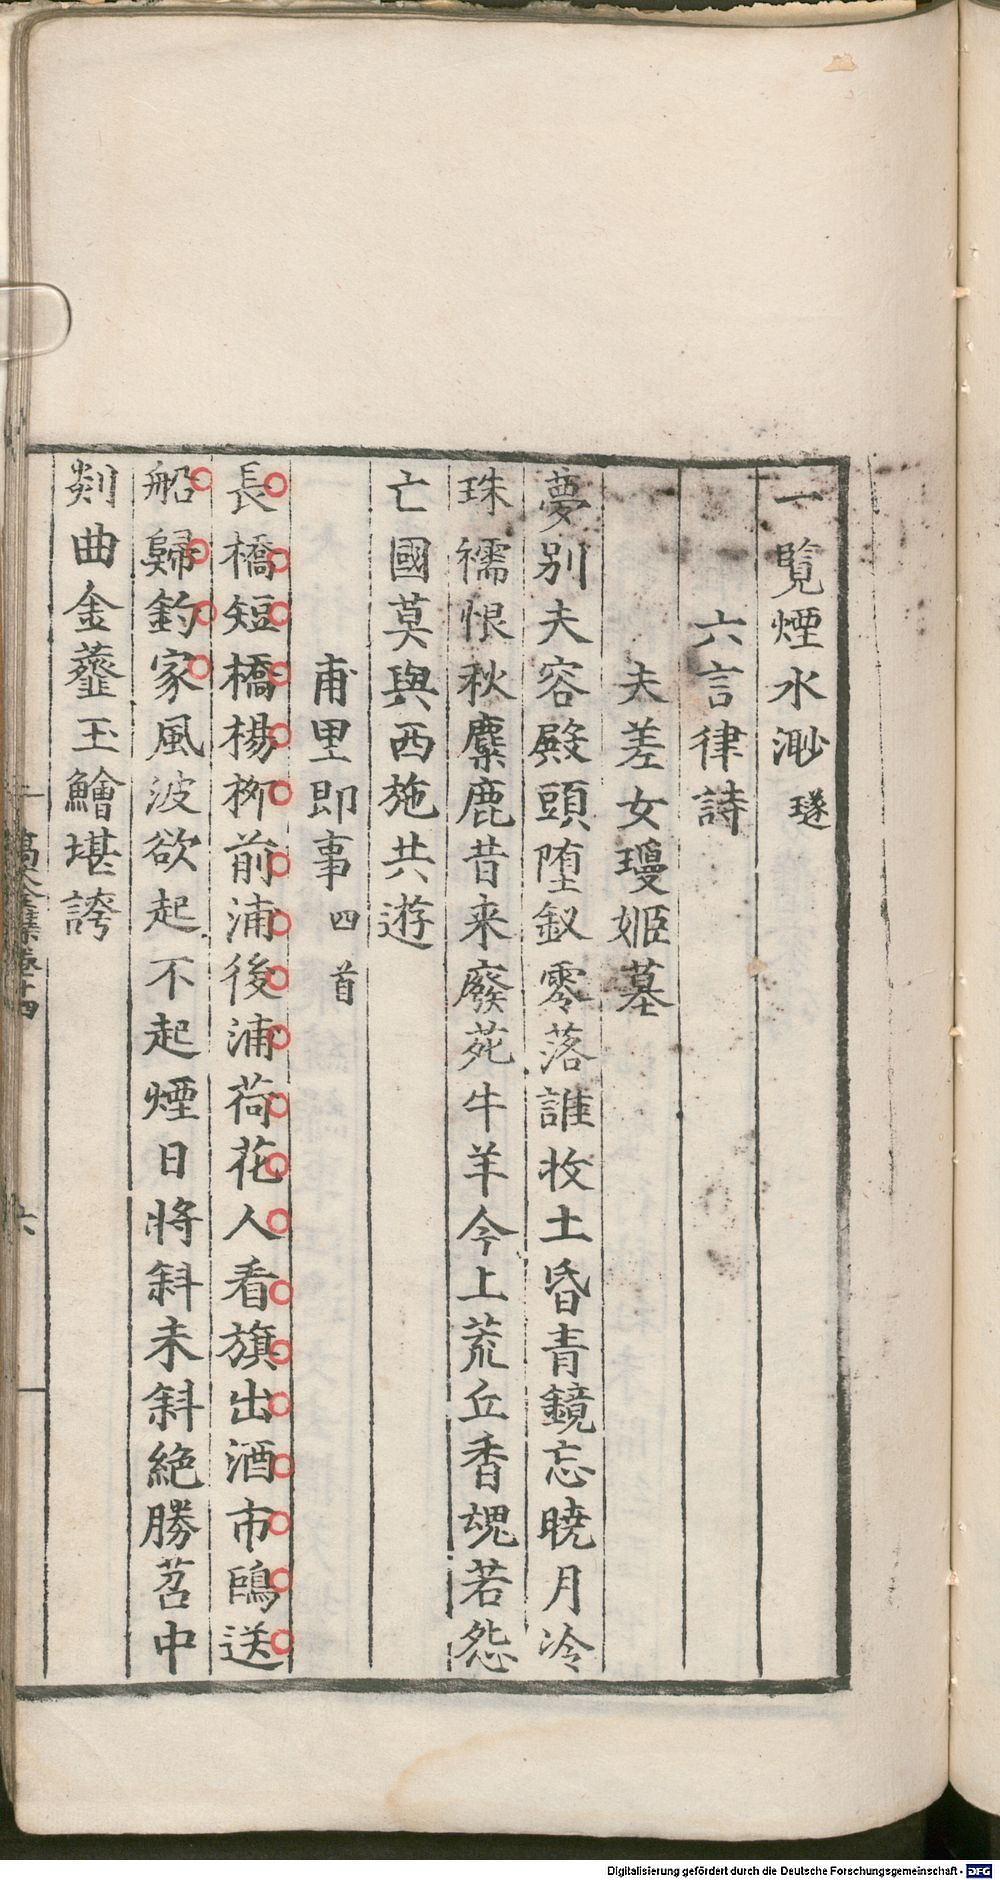 一覧煙水渺 璲
六言律詩
夫差女瓊姬墓
夢別夫容殿頭堕釵零落誰收土昏青鏡忘曉月冷
珠襦恨秋麋鹿昔来廢苑牛羊今上荒丘香魂若怨
亡國莫與西施共遊
甫里即事 四首
長橋短橋楊栁前浦後浦荷花人看旗出酒市鷗送
船歸釣家風波欲起不起煙日將斜未斜絶勝苕中
剡曲金虀玉鱠堪誇
高太全集卷十四
六
Digitalisierung gefördert durch die Deutsche Forschungsgemeinschaft - DFG